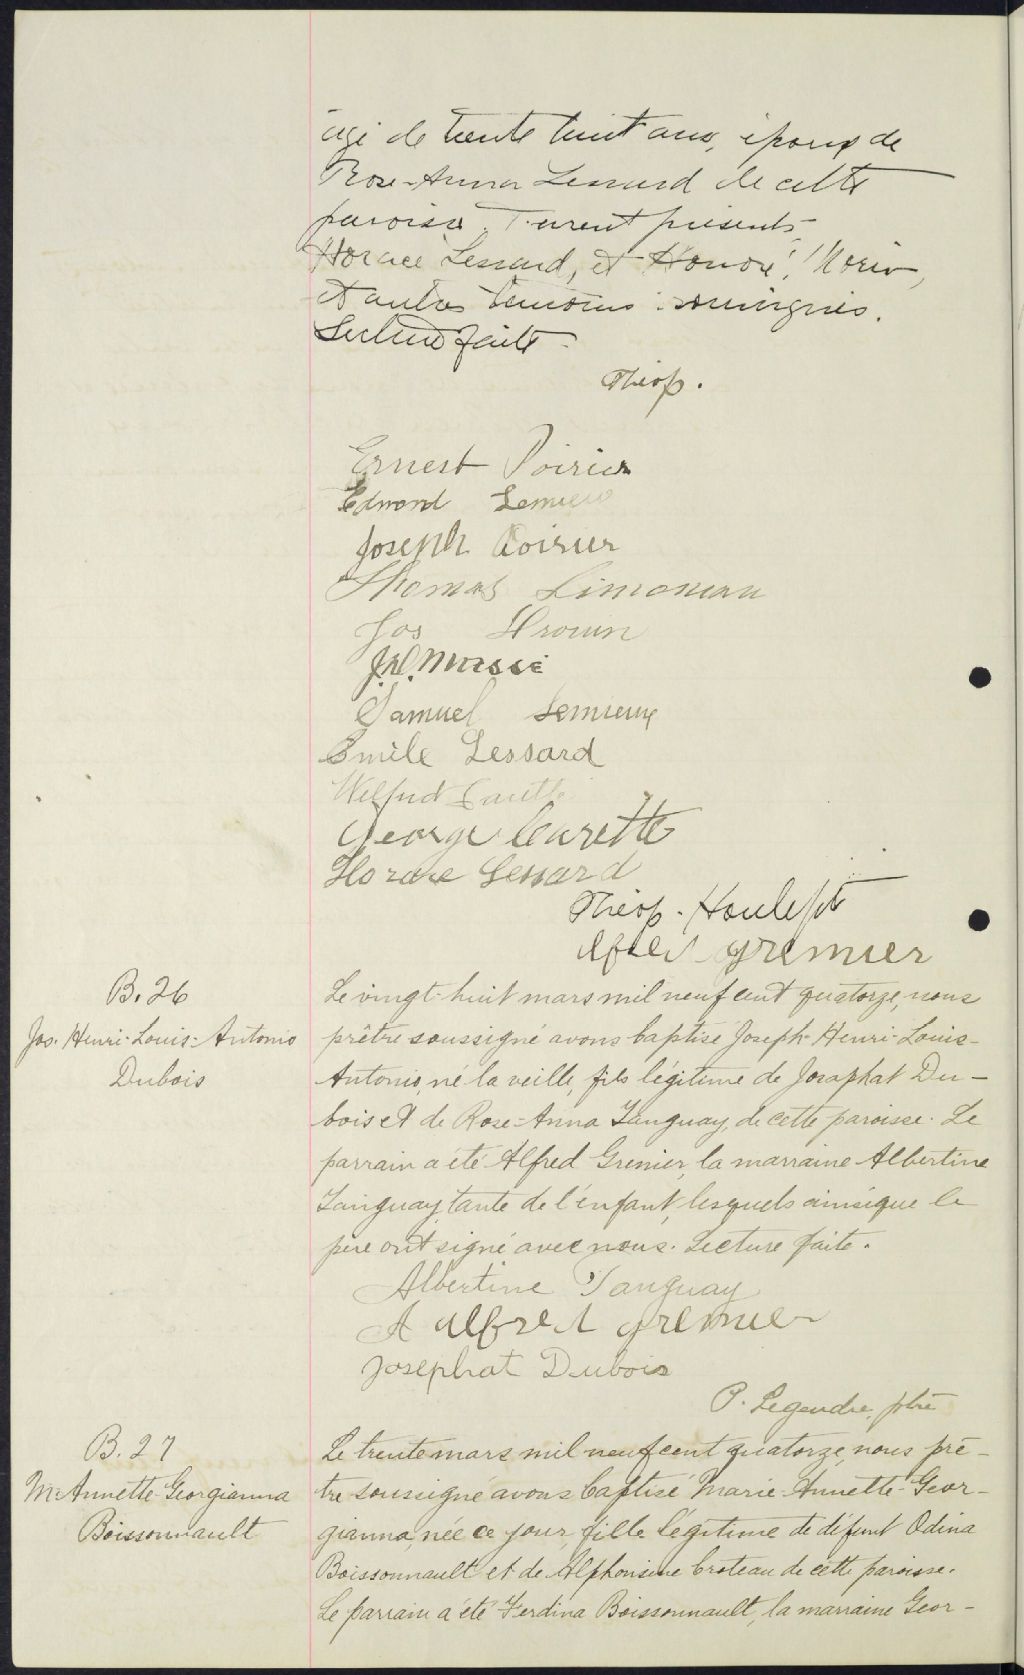 agé de trente huit ans, époux de
Rose-Anna Lessard de cette
paroisse. Furent présents
Horace Lessard, et Honoré Morin,
et autres témoins soussignés.
Lecture faite.
Théop.
Ernest Poirier
Edmond Lemieux
Joseph Poirier
Thomas Limoneau
Jos
Samuel Lemieux
Emile Lessard
Wilfrid
George Carette
Horace Lessard
Théop. Houle ptr
Alfred Grenier
B. 26
Jos. Henri-Louis-Antonio
Dubois
Le vingt-huit mars mil neuf cent quatorze, nous
prêtre soussigné avons baptisé Joseph-Henri-Louis-
Antonio, né la veille, fils légitime de Josaphat Du-
bois et de Rose-Anna Tanguay, de cette paroisse. Le
parrain a été Alfred Grenier, la marraine Albertine
Tanguay, tante de l'enfant, lesquels ainsique le
père ont signé avec nous. Lecture faite.
Albertine Tanguay
A Alfred Grenier
Josephat Dubois
P. Legendre, ptre
B. 27
M. Annette-Georgianna
Boissonnault
Le trente mars mil neuf cent quatorze, nous prê-
tre soussigné avons baptisé Marie-Annette-Geor-
gianna, née ce jour, fille légitime de défunt Odina
Boissonnault et de Alphonsine Croteau de cette paroisse.
Le parrain a été Ferdina Boissonnault, la marraine Geor-